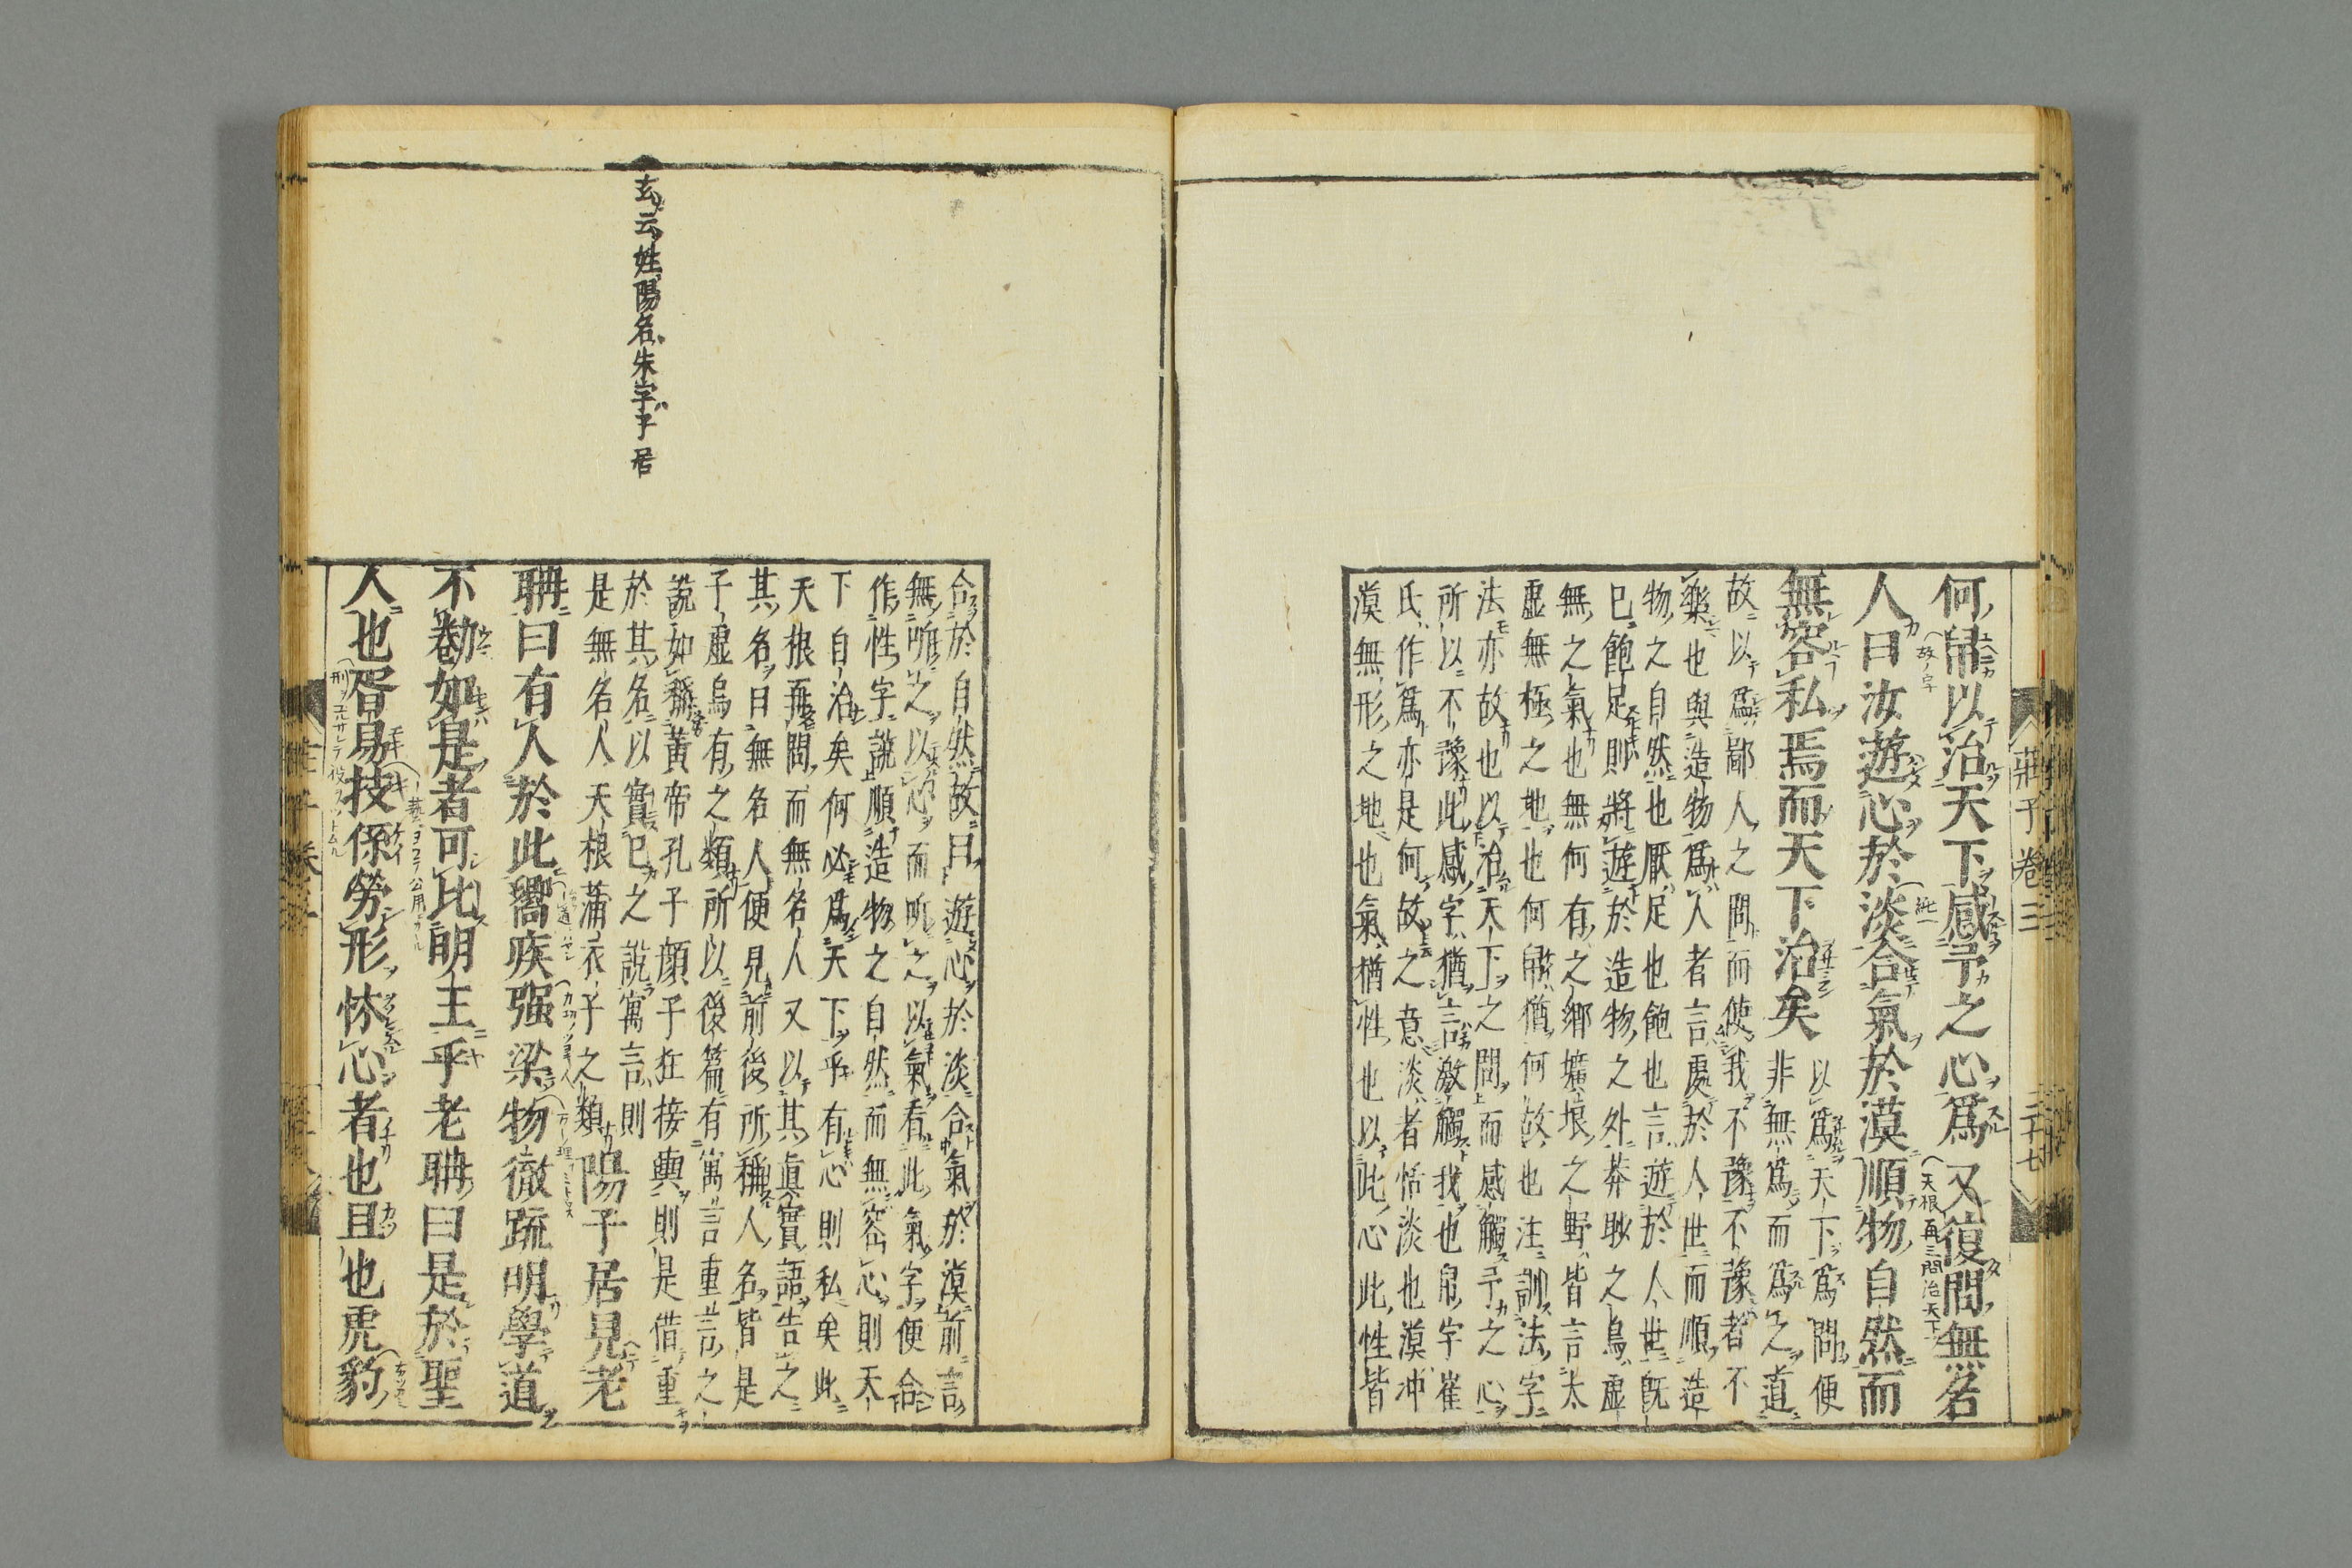 莊子卷三
三十七
何帠以治天下感予之心爲又復問無名
人曰汝遊心於淡合氣於漠順物自然而
無容私焉而天下治矣
以爲天下爲問便
非無爲而爲之道
故以爲鄙人之問而使我不豫不豫者不
樂也與造物爲人者言處於人世而順造
物之自然也厭足也飽也言遊於人世旣
已飽足則將遊於造物之外莽眇之鳥虛
無之氣也無何有之鄉壙垠之野皆言太
虛無極之地也何帠猶何故也注訓法字
法亦故也以治天下之問而感觸予之心
所以不豫此感字猶言激觸我也帠字崔
氏作爲亦是何故之意淡者恬淡也漠冲
漠無形之地也氣猶性也以此心此性皆
合於自然故曰遊心於淡合氣於漠前言
無聽之以心而聽之以氣看此氣字便合
作性字說順造物之自然而無容心則天
下自治矣何必爲天下乎有心則私矣此
天根再問而無名人又以其眞實語告之
其名曰無名人便見前後所稱人名皆是
子虛烏有之類所以後篇有寓言重言之
說如稱黃帝孔子顏子狂接輿則是借重
於其名以實己之說寓言則
是無名人天根蒲衣子之類陽子居見老
聃曰有人於此嚮疾强梁物徹疏明學道
不勌如是者可比明王乎老聃曰是於聖
人也胥易技係勞形怵心者也且也虎豹
玄云姓陽名朱字子居